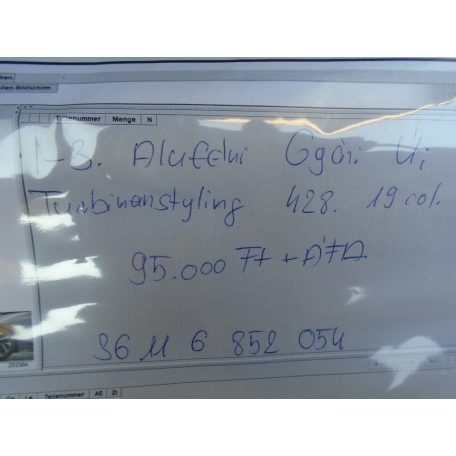 ollen Bildschirm
Teilenummer Menge N
1-B. Alufelni Gyári Új
Turbinenstyling 428. 19 col.
95.000 Ft + ÁFA
36 11 6 852 054
353364
Teilenummer AE ZI